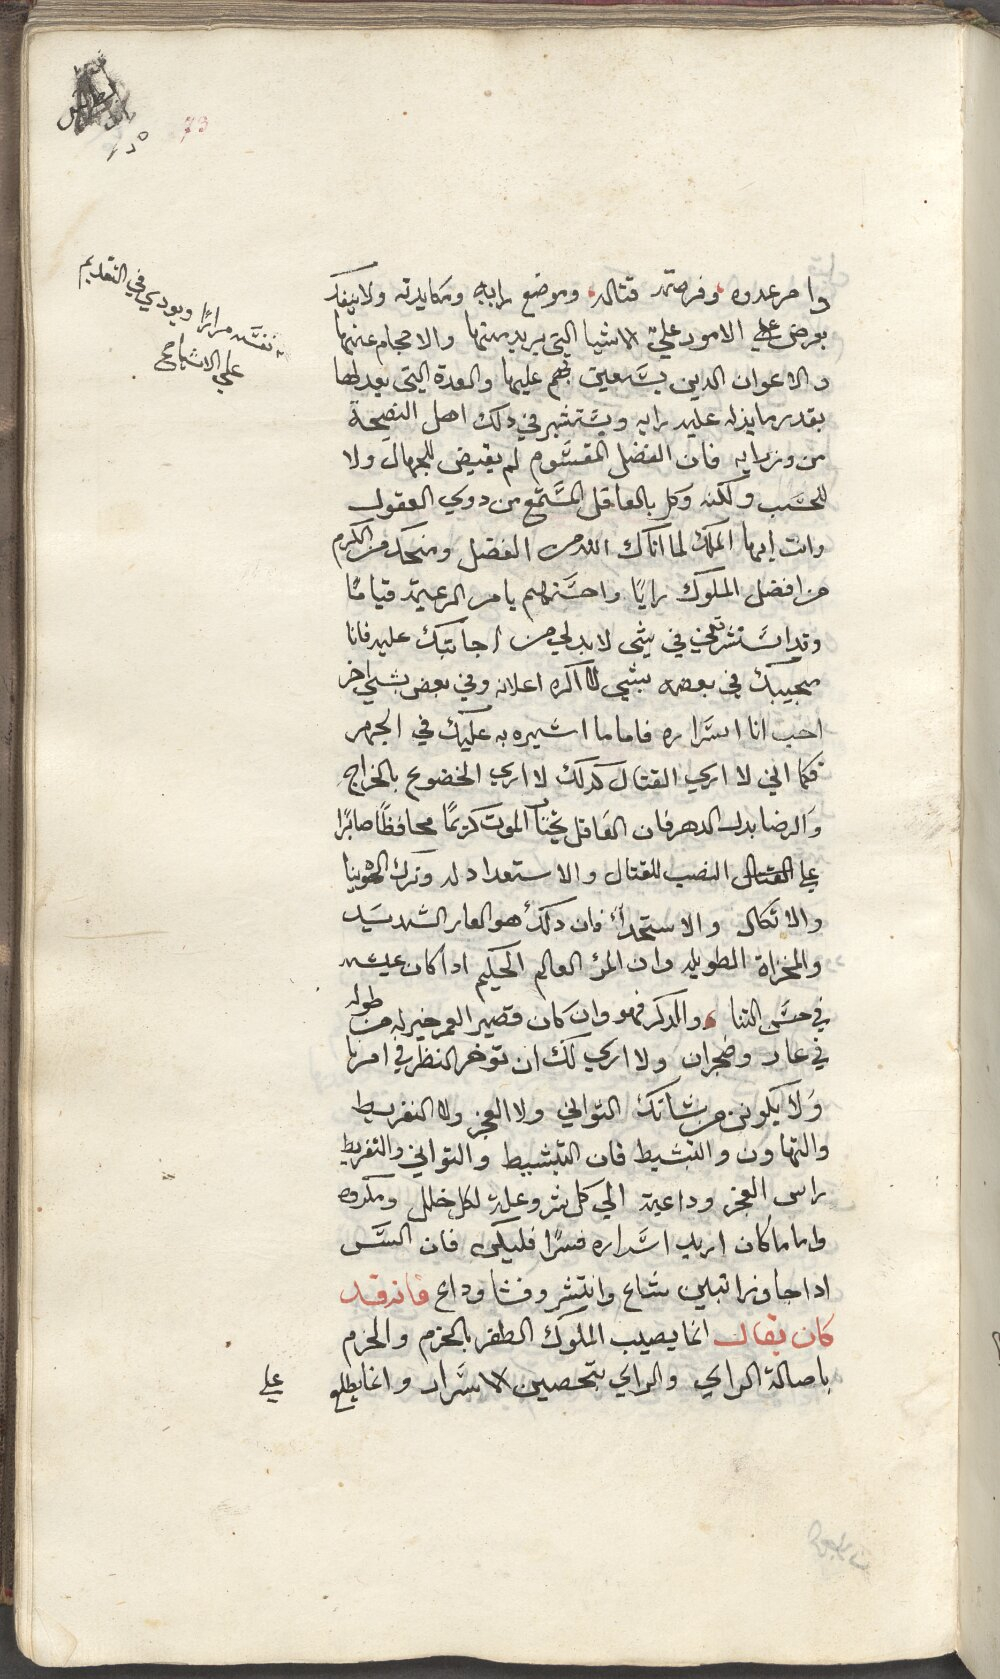 73
وامر عدوه وفرصته قتاله وموضع رايه ومكايدته ولا ينفك
يعرض علي الامور عليه الاشيا التي يريد منها والاحجام عنها
والاعوان الدين يستعين بهم عليها والعدة التي يعد لها
بقدر ما يدله عليه رايه ويستشير في دلك اهل النصيحة
من وزرايه فان الفضل المقسوم لم يقيض للجهال ولا
للحسب ولكنه وكل بالعاقل المستمع من دوي العقول
وانت ايها الملك لما اتاك الله من الفضل ومنحك من الكرم
من افضل الملوك رايًا واحسنهم بامر الرعية قيامًا
وقد استشرتني في شي لا بد لي من اجابتك عليه فانا
مجيبك في بعضه بشي لا اكره اعلانه وفي بعض بشي اخر
احب انا اسراره فاما ما اشيره به عليك في الجهر
فكما اني لا اري القتال كدلك لا اري الخضوع بالخراج
والرضا بدل الدهر فان العاقل الموت كريمًا محافظًا صابرًا
علي القتال النصب للقتال والاستعداد له وترك الهوينا
والاتكال والاستحدا فان دلك هو العار الشديد
والمخزاة الطويله وان المر العالم الحكيم ادا كان عيشه
في حسن الثنا والدكر فهو وان كان قصير العمر خير له من طوله
في عار وضجران ولا اري لك ان توخر النظر في امرها
ولا يكونن من شانك التواني ولا العجز ولا التفريط
والتهاون والتثبيط فان التثبيط والتواني والتفريط
راس العجز وداعية الي كل شر وعلة لكل خلل ومكروه
واما ما كان اريد اسراره سرًا فليكن فان السر
ادا جاوز اتنين شاع وانتشر وفشا وداع فانه قد
كان يقال انما يصيب الملوك الظفر بالحزم والحزم
باصالة الراي والراي بتحصين الاسرار وانما يطلع
علي
نفسه مرارًا ويودي في التقديم
علي الاشباح